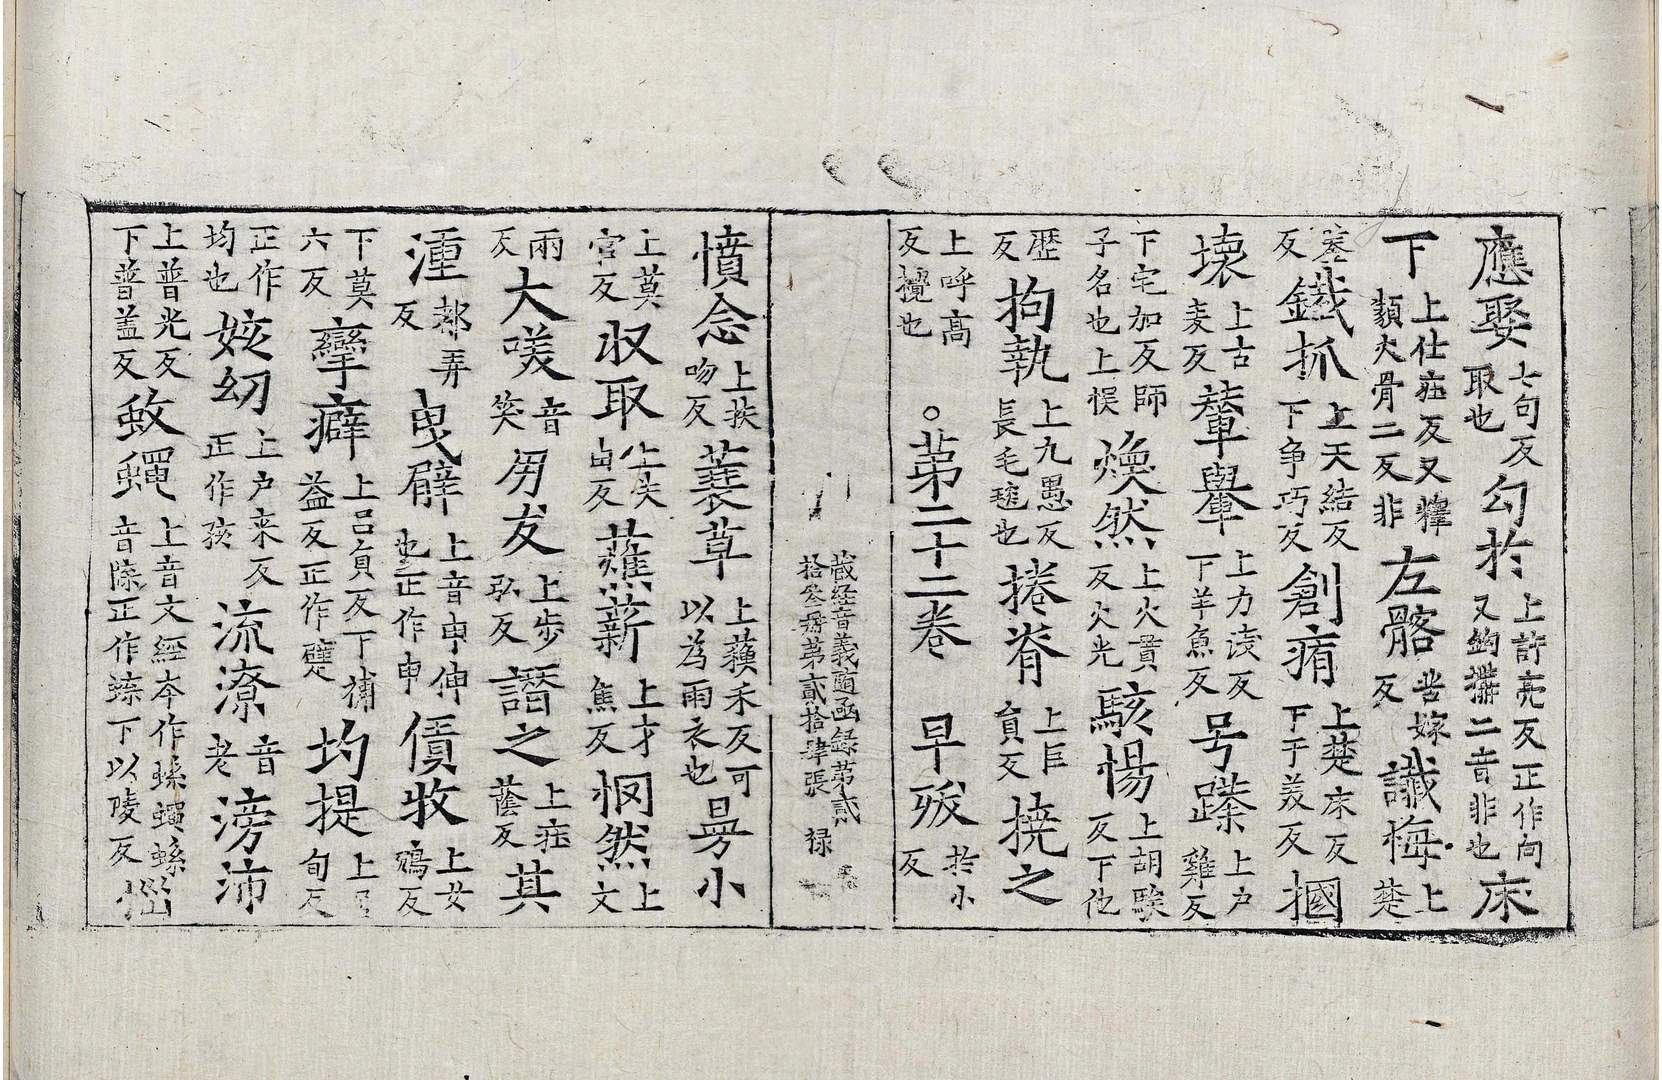 應娶七句反取也勾於上許亮反正作向又鉤攀二音非也床
下上仕莊反又顡火骨二反非左髂苦嫁反讖悔上楚
蔭反鐵抓上天結反下爭巧反創痏上楚床反下于美反摑
壞上古麦反輦轝上力淺反下羊魚反号蹊上户雞反
下宅加反師子名也上悮煥然上火貫反火光駭惕上胡駭反下他
歷反拘執上九愚反長毛毯也捲脊上臣負反撓之
上呼高反攪也○苐二十二卷早殀於小反
藏經音義随函録苐貳拾叁冊苐貳拾肆張 禄
憤念上扶吻反蓑草上蘓禾反可以為雨衣也曓小
上莫官反収取上失由反蕉薪上才焦反惘然上文
兩反大㗛音笑朋友上步弘反譖之上莊蔭反其
湩都弄反曳躃上音申伸也正作申債牧上女鴆反
下莫六反攣癖上吕負反下補益反正作躄均提上居旬反
正作均也姟幼上户来反正作孩流潦音老滂沛
上普光反下普盖反蚊蠅上音文經本作蜍蠙蜍音除正作蜍下以陵反惱